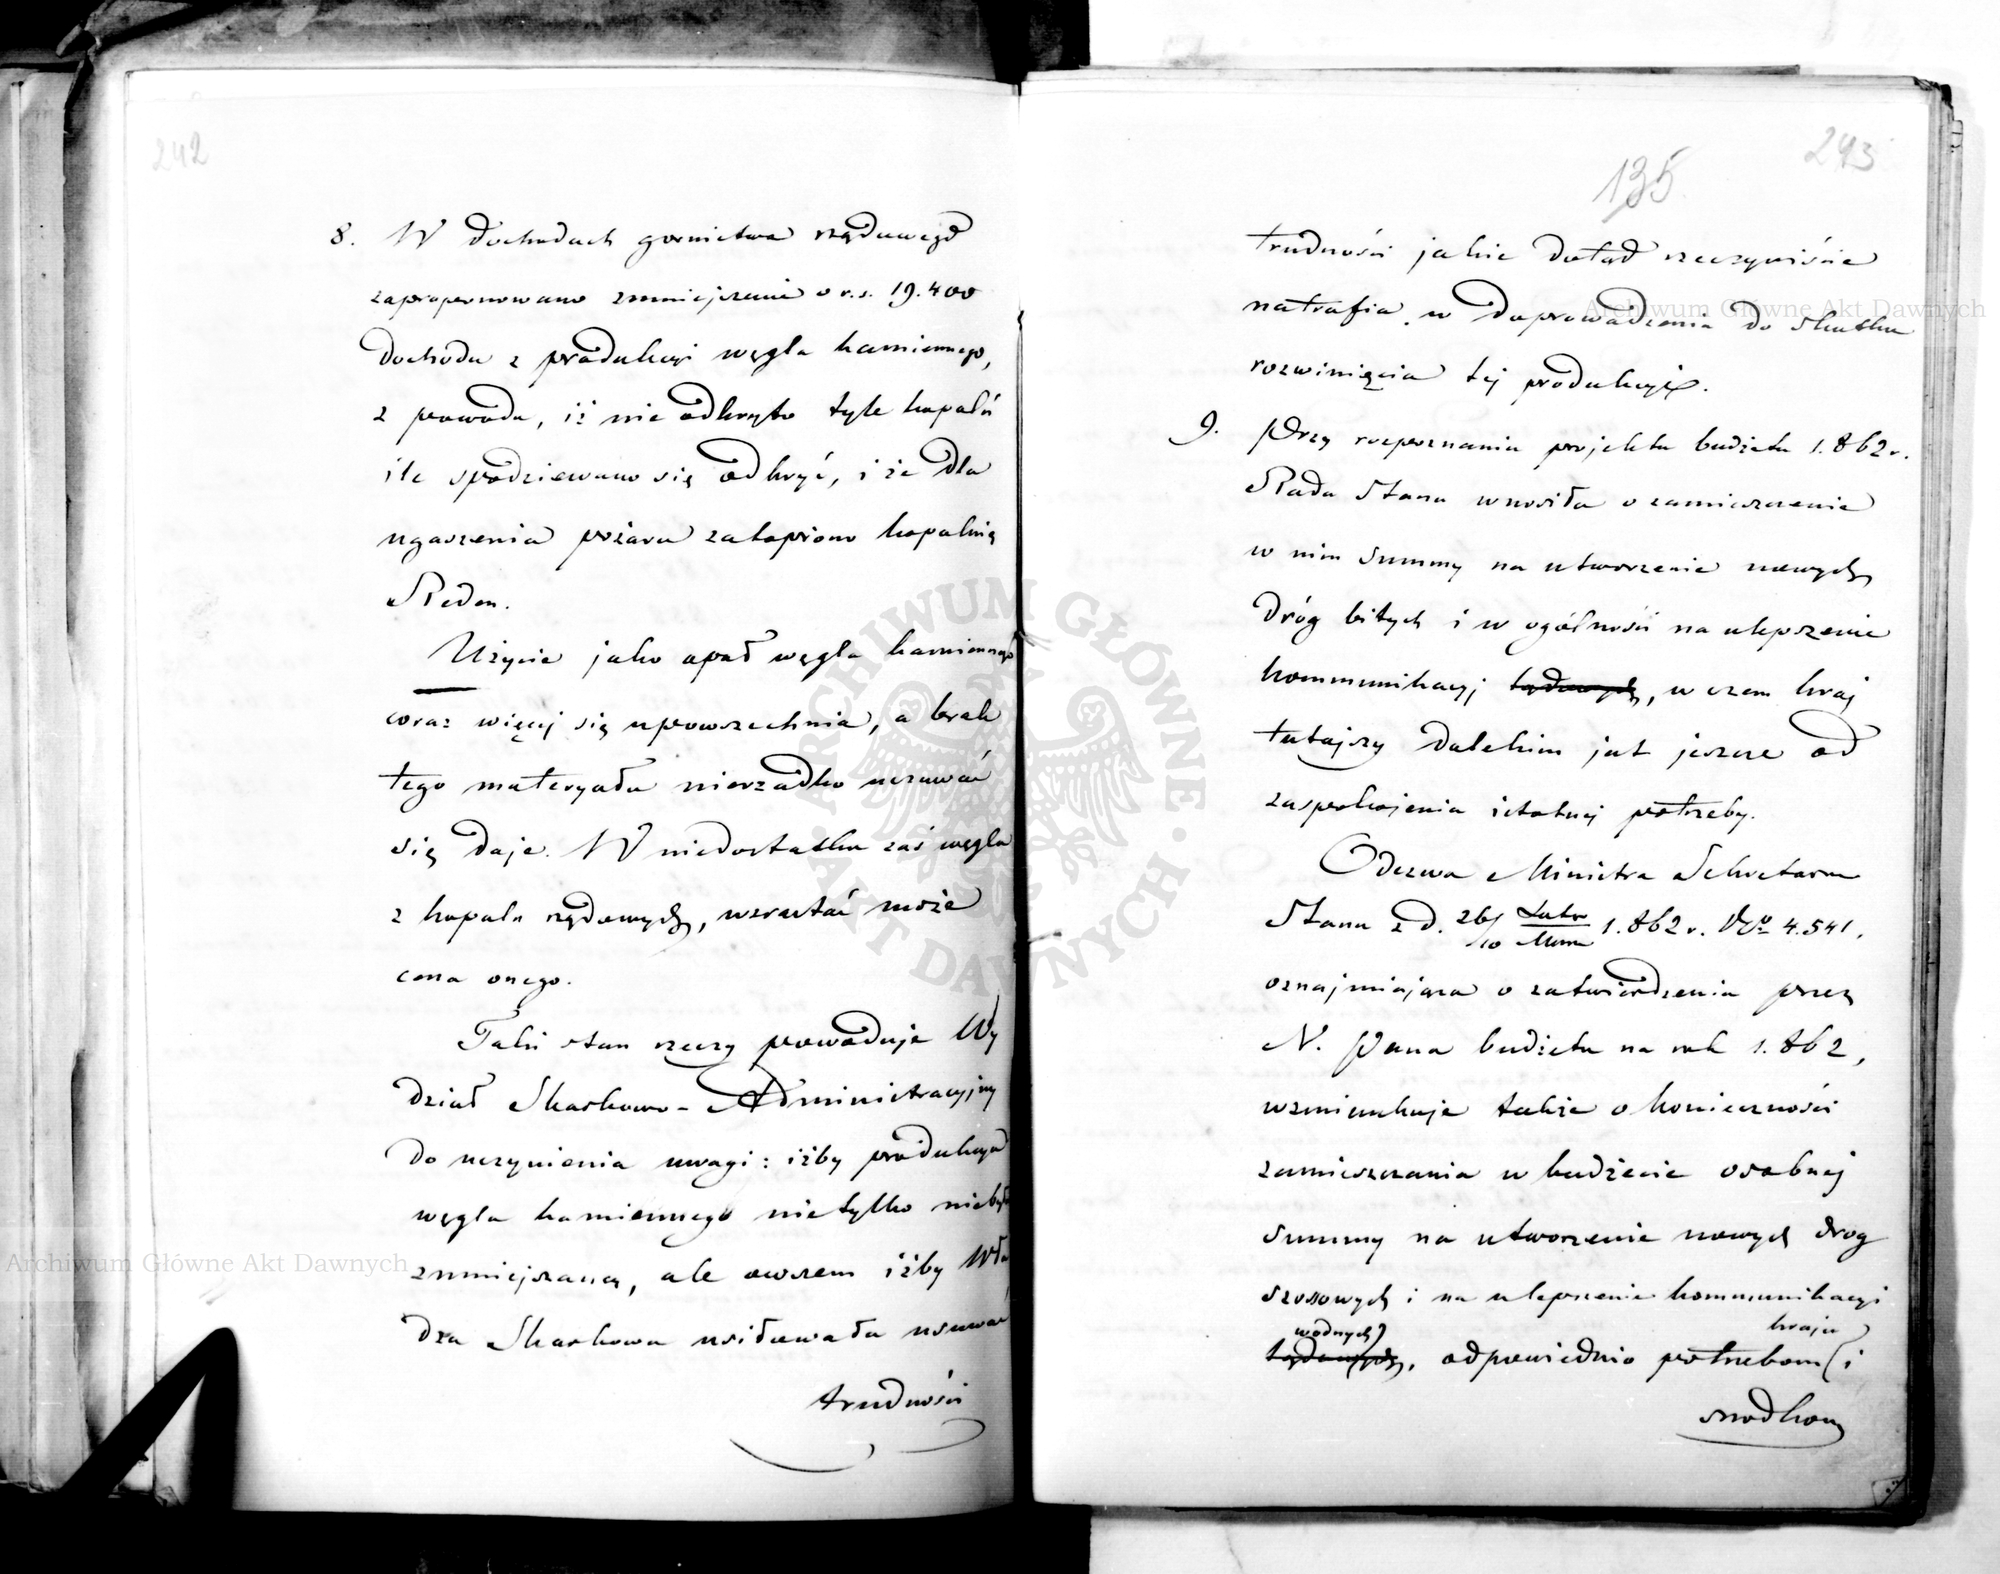 242
8. W dochodach gornictwa rządowego
zaproponowano zmniejszenie o r.s. 19.400
dochodu z produkcyi węgla kamiennego,
z powodu, iż nie odkryto tyle kopalń
ile spodziewano się odkryć, i że dla
ugaszenia pożaru zatopiono kopalnię
Reden.
Użycie jako opał węgla kamiennego
coraz więcej się upowszechnia, a brak
tego materyału nierzadko uczuwać
się daje. W niedostatku zaś węgla
z kopalń rządowych, wzrastać może
cena onego.
Taki stan rzeczy powoduje Wy
dział Skarbowo-Administracyjny
do uczynienia uwagi: iżby produkcya
węgla kamiennego nietylko niebyła
zmniejszaną, ale owszem iżby Wła
dza Skarbowa usiłowała usuwać
trudności
243
135
trudności jakie dotąd rzeczywiście
natrafia w doprowadzeniu do skutku
rozwinięcia tej produkcyi.
9. Przy rozpoznaniu projektu budżetu 1.862 r.
Rada Stanu wnosiła o zamieszczenie
w nim summy na utworzenie nowych
dróg bitych i w ogólności na ulepszenie
kommunikacyj lądowych, w czem kraj
tutejszy dalekim jest jeszcze od
zaspokojenia istotnej potrzeby.
Odezwa Ministra Sekretarza
Stanu z d. 26/10 Luto/Marca 1.862 r. No 4.541.
oznajmiająca o zatwierdzeniu przez
N. Pana budżetu na rok 1.862,
wzmiankuje także o konieczności
zamieszczania w budżecie osobnej
summy na utworzenie nowych drog
szosowych i na ulepszenie kommunikacyi
wodnych kraju
lądowych, odpowiednio potrzebom i
środkom
Archiwum Główne Akt Dawnych
Archiwum Główne Akt Dawnych
ARCHIWUM GŁÓWNE AKT DAWNYCH